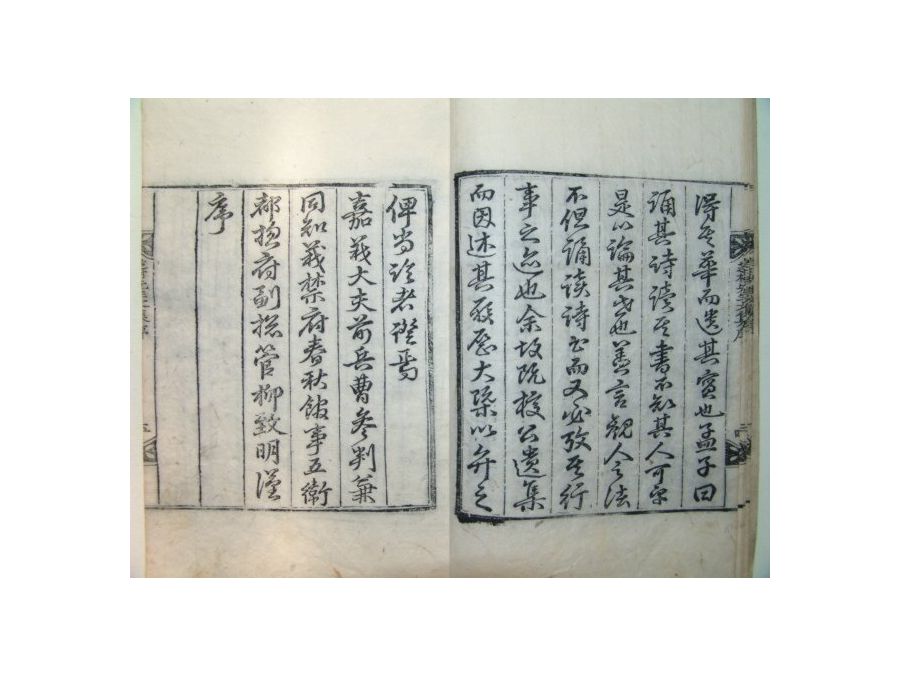 得其華而遺其實也孟子曰
誦其詩讀其書不知其人可乎
是以論其世也善言觀人之法
不但誦讀詩書而又必攷其行
事之迹也余故旣校公遺集
而因述其履歷大槩以弁之
俾尙論者攷焉
嘉義大夫前兵曹參判兼
同知義禁府春秋館事五衛
都摠府副摠管柳致明謹
序